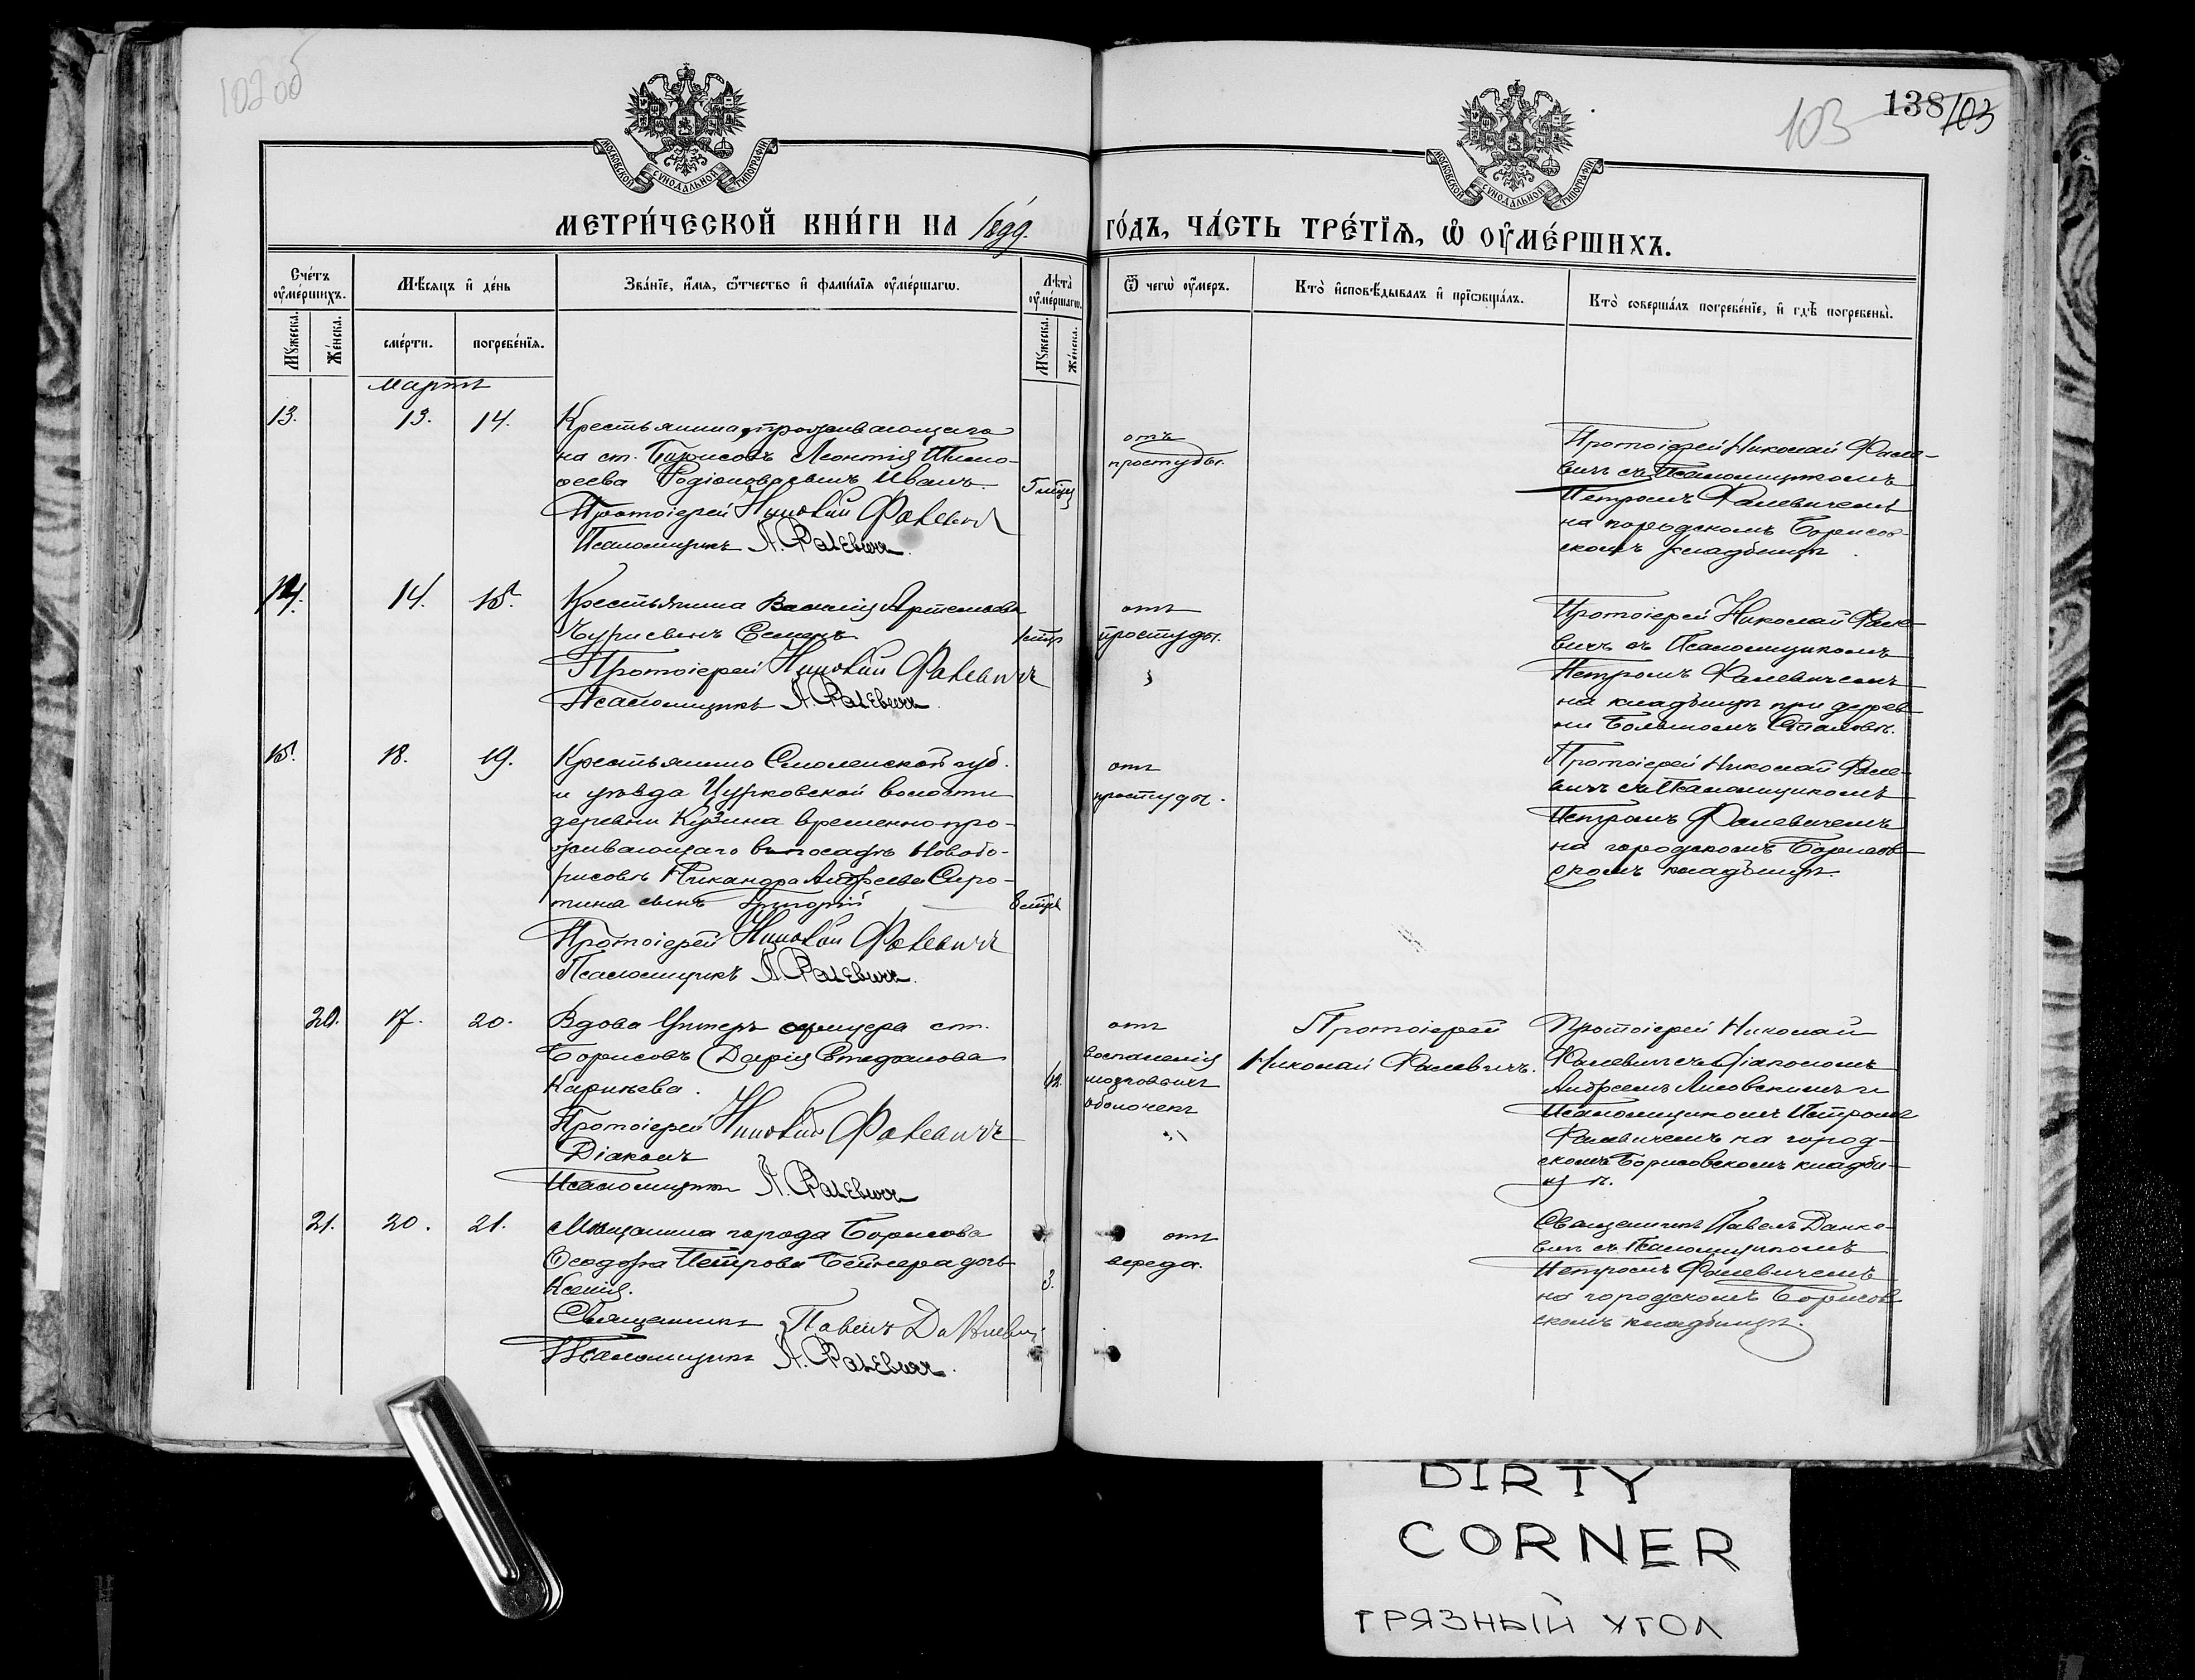 102 об
138
103
103
МОСКОВСКОЙ СѴНОДАЛЬНОЙ ТИПОГРАФІИ
МОСКОВСКОЙ СѴНОДАЛЬНОЙ ТИПОГРАФІИ
МЕТРИ́ЧЕСКОЙ КНИ́ГИ НА 1899.
ГО́ДЪ, ЧА́СТЬ ТРЕ́ТЇѦ, Ѡ҆ ОУ҆МЕ́РШИХЪ.
Сче́тъ оу҆ме́ршихъ.
Мѣ́сѧцъ и҆ де́нь
Зва́нїе, и҆́мѧ, ѻ҆́тчество и҆ фами́лїѧ оу҆ме́ршагѡ.
Лѣ́та оу҆ме́ршагѡ.
Ѿ чегѡ̀ оу҆́меръ.
Кто̀ и҆сповѣ́дывалъ и҆ прїѡбща́лъ.
Кто̀ соверша́лъ погребе́нїе, и҆ гдѣ̀ погребены̀.
Мꙋ́жеска.
Же́нска.
сме́рти.
погребе́нїѧ.
Мꙋ́жеска.
Же́нска.
Мартъ
13.
13.
14.
Крестьянина, проживающаго
на ст. Борисовъ Леонтія Тимо-
ѳеева Родіонова сынъ Иванъ.
5 мѣц
Протоіерей Николай Фалевичъ
Псаломщикъ П. Фалевичъ.
отъ
простуды.
Протоіерей Николай Фале-
вичъ съ Псаломщикомъ
Петромъ Фалевичемъ
на городскомъ Борисов-
скомъ кладбищѣ.
14.
14.
15.
Крестьянина Василія Артемьева
сынъ Семенъ
Протоіерей Николай Фалевичъ
Псаломщикъ П. Фалевичъ.
отъ
простуды.
Протоіерей Николай Фале-
вичъ съ Псаломщикомъ
Петромъ Фалевичемъ
на кладбищѣ при дерев-
ни Большомъ Стаховѣ.
15.
18.
19.
Крестьянина Смоленской губ.
и уѣзда Цурковской волости
деревни Кузина временно про-
живающаго въ посадѣ Новобо-
рисовѣ Никандра Андреева Сиро-
тина сынъ Григорій
Протоіерей Николай Фалевичъ
Псаломщикъ П. Фалевичъ.
отъ
простуды.
Протоіерей Николай Фале-
вичъ съ Псаломщикомъ
Петромъ Фалевичемъ
на городскомъ Борисов-
скомъ кладбищѣ.
20.
17.
20.
Вдова Унтеръ офицера ст.
Борисовъ Дарія Стефанова
Карнѣева.
Протоіерей Николай Фалевичъ
Діаконъ
Псаломщикъ П. Фалевичъ
отъ
воспаленія
мозговыхъ
оболочекъ
Протоіерей
Николай Фалевичъ.
Протоіерей Николай
Фалевичъ съ Діакономъ
Андреемъ Лисовскимъ и
Псаломщикомъ Петромъ
Фалевичемъ на город-
скомъ Борисовскомъ кладби-
щѣ.
21.
20.
21.
Мѣщанина города Борисова
Ѳеодора Петрова Бейнера дочь
Ксенія.
3.
Священникъ Павелъ Данкевичъ
Псаломщикъ П. Фалевичъ.
отъ
вереда.
Священникъ Павелъ Данке-
вичъ съ Псаломщикомъ
Петромъ Фалевичемъ
на городскомъ Борисов-
скомъ кладбищѣ.
DIRTY
CORNER
ГРЯЗНЫЙ УГОЛ